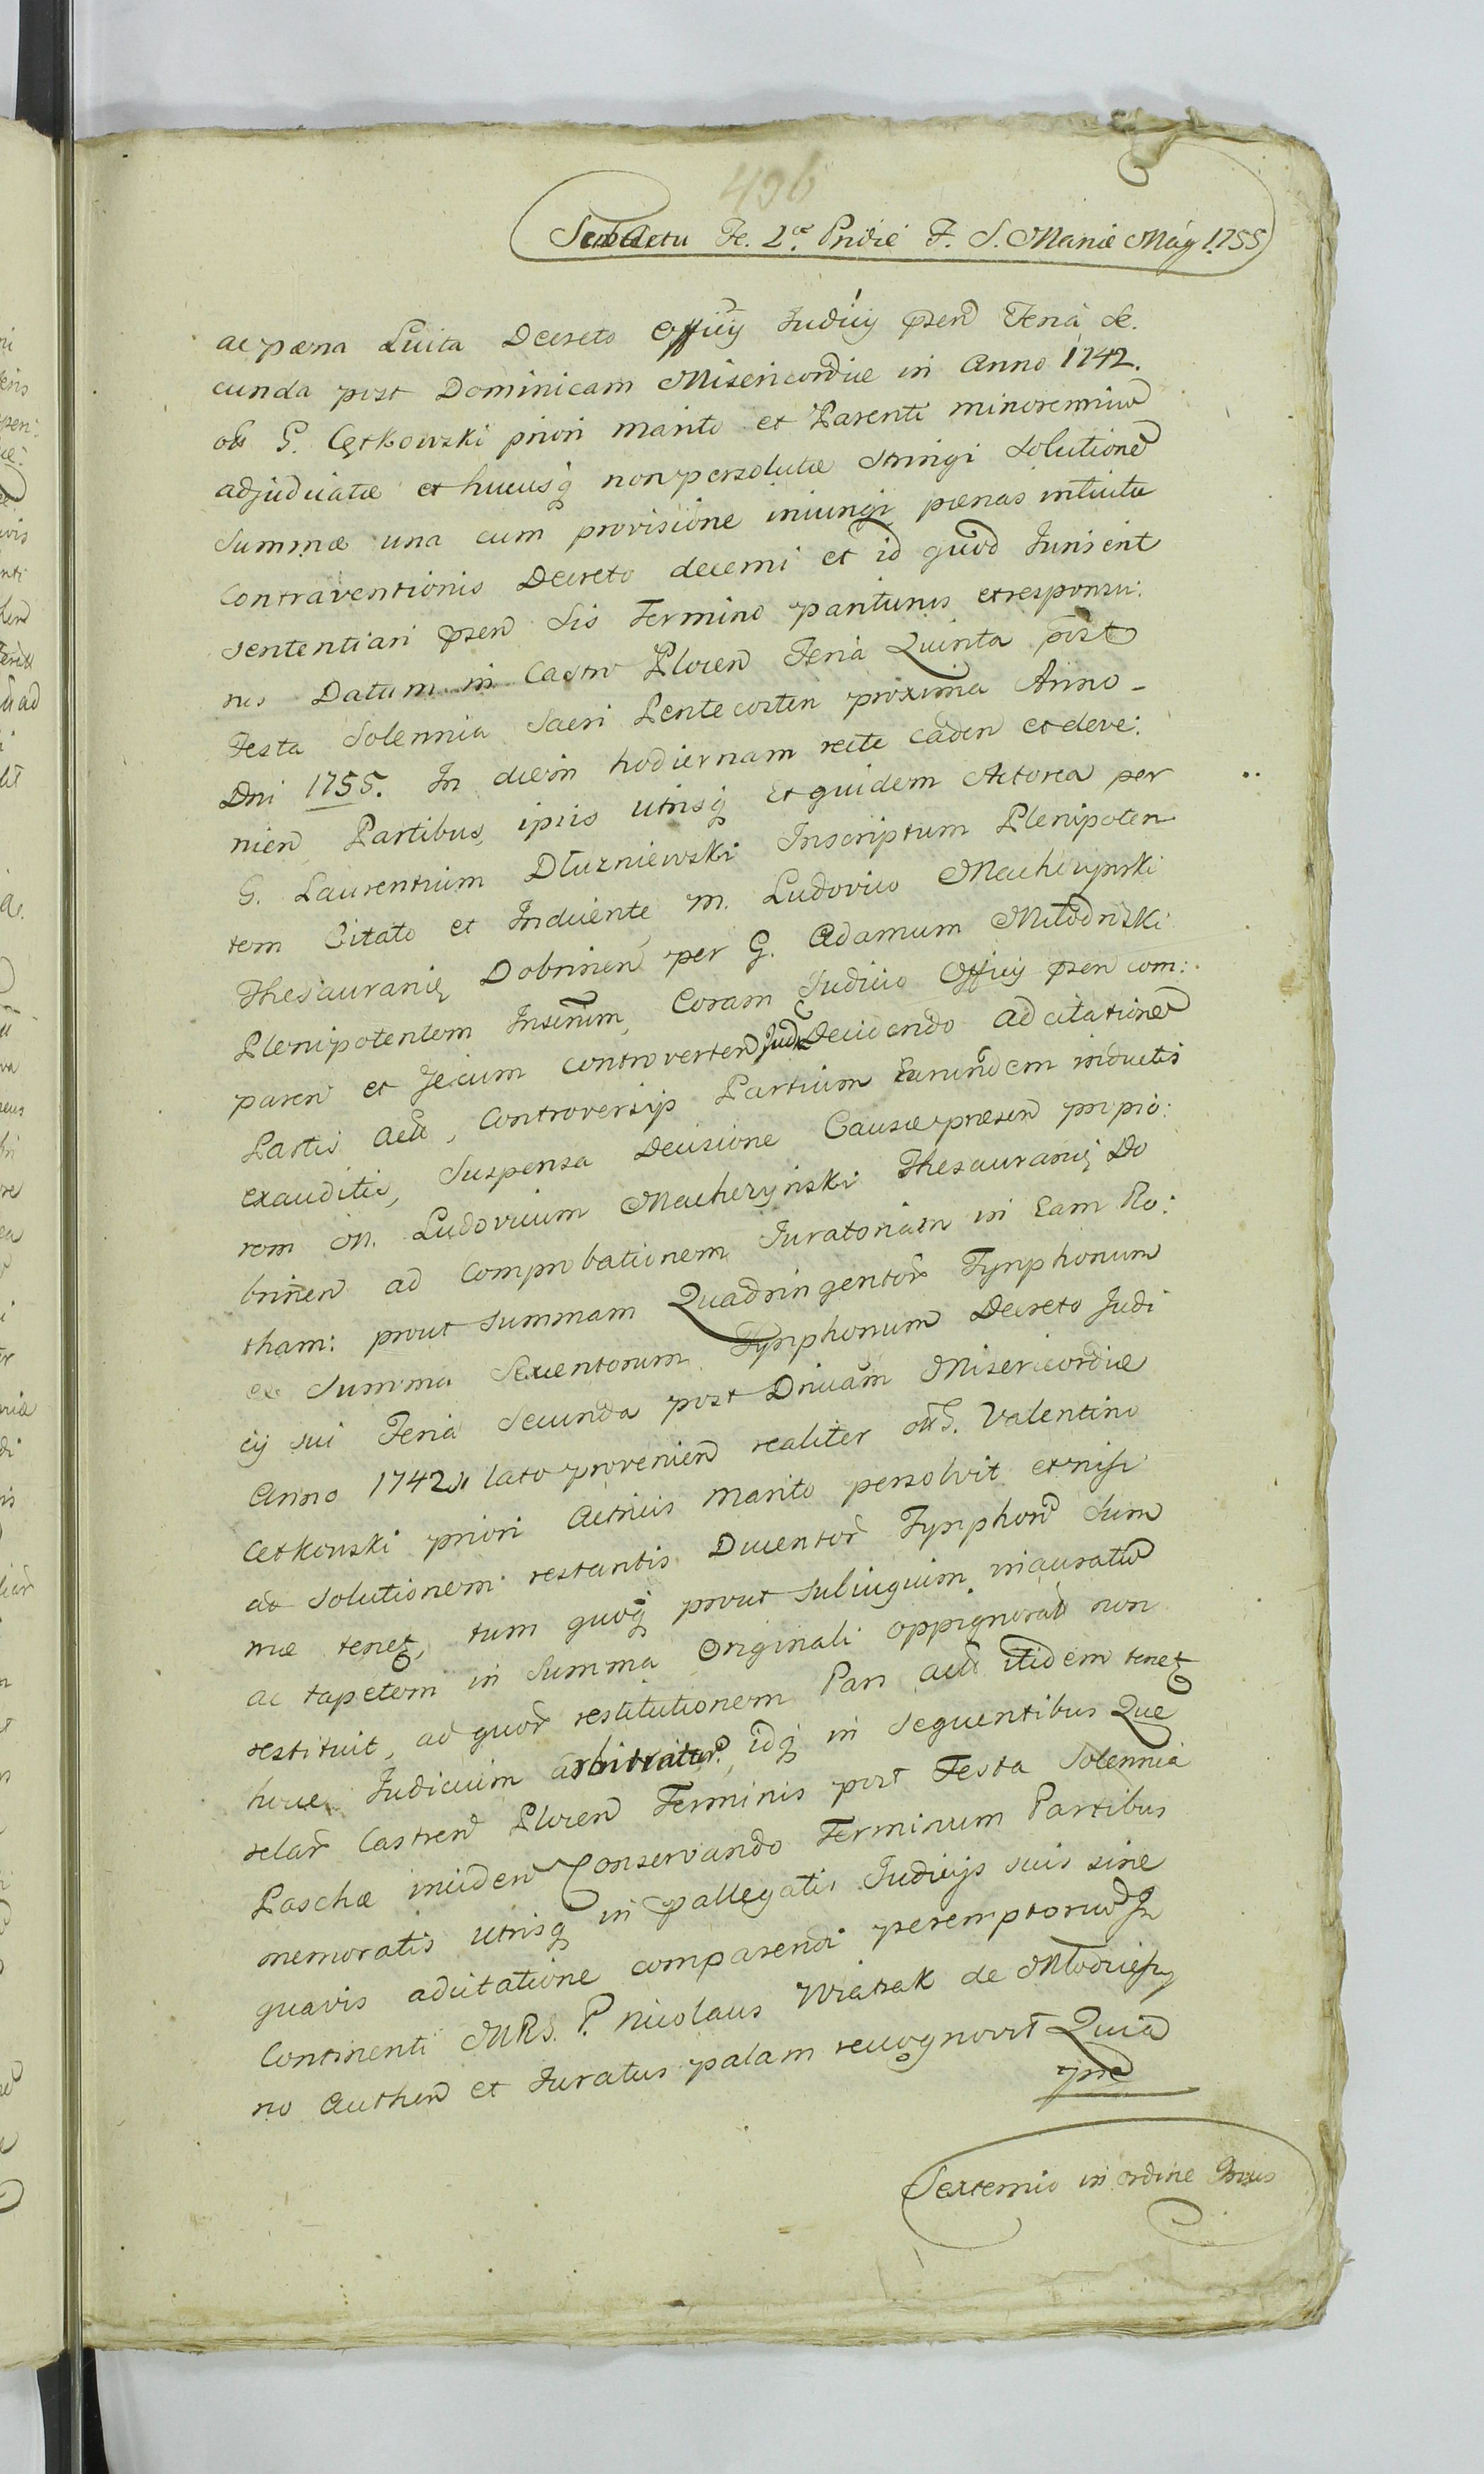 496
Sub Actu Fe. 2ᵈᵃ Pridie F. S. Mariæ Mág 1755
ac pæna Luita Decreto Officÿ Judicÿ psen Feria Se.
cunda post Dominicam Misericordiæ in Anno 1742.
olĩ G. Cętkowski priori marito et Parenti minorennium
adjudicatæ et hucusq non persolutæ Stringi Solutione
Summæ una cum provisione iniungi pænas intuitu
Contraventionis Decreto decerni et id quod Juris erit
Sententiari psen Sis Termino pariturus et responsu:
rus Datum in Castro Plocen Feria Quinta post
Festa Solennia Sacri Pentecosten proxima Anno -
Dni 1755. In diem hodiernam recte caden et deve:
nien Partibus ipsis utrisq Et quidem Actorea per
G. Laurentium Dłuzniewski Inscriptum Plenipoten
tem Citato et Inducente M. Ludovico Machczynski
Thesaurarię Dobrinen per G. Adamum Młodnicki
Plenipotentem Insertum, Coram Judicio Officÿ psen com:
paren et Secum controverten Jude Decidendo ad citatione
Partis Actæ, Controversÿs Partium Earundem inductis
exauditis, Suspensa Decisione Causæ præsen propio:
rem M. Ludovicum Machczyński Thesaurarię Do
brinen ad Comprobationem Juratoriam in Eam Ro:
tham: prout Summam Quadringentor Tynphonum
ex Summa Sexcentorum Tynphonum Decreto Judi
cÿ sui Feria Secunda post Dnicam Misericordiæ
Anno 1742 lato provenien realiter olĩ G. Valentino
Cetkowski priori Actricis marito persolvit et nisi
ad Solutionem restantis Ducentor Tynphon Sum
mæ tenet, tum quoq prout Subiugium inauratum
ac tapetem in Summa Originali oppignorat non
restituit, ad quor restitutionem Pars acta itidem tenet
hocce Judicium arbitratur, idq in Sequentibus Que
relar Castren Plocen Terminis post Festa Solennia
Paschæ inciden Conservando Terminum Partibus
memoratis utrisq in pallegatis Judicÿs suis sine
quavis adcitatione comparendi peremptorium
Continenti MRS. P. Nicolaus Wiatrak de Młodzieszy
no Authen et Juratus palam recognovit Quia
ipse
Sexternio in ordine Imus